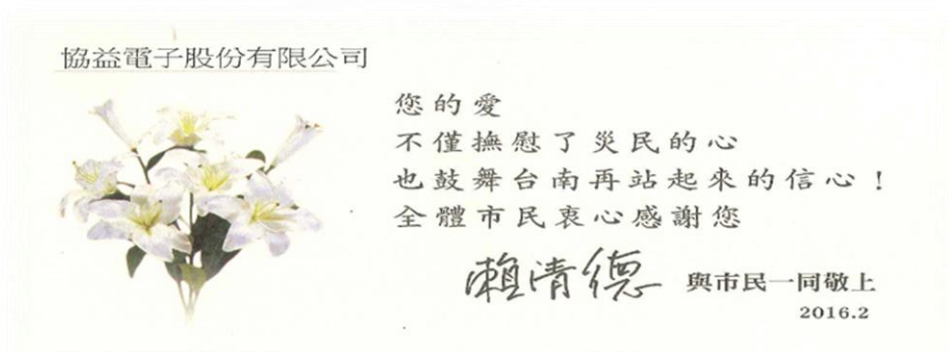 協益電子股份有限公司
您的愛
不僅撫慰了災民的心
也鼓舞台南再站起來的信心！
全體市民衷心感謝您
賴清德 與市民一同敬上
2016.2